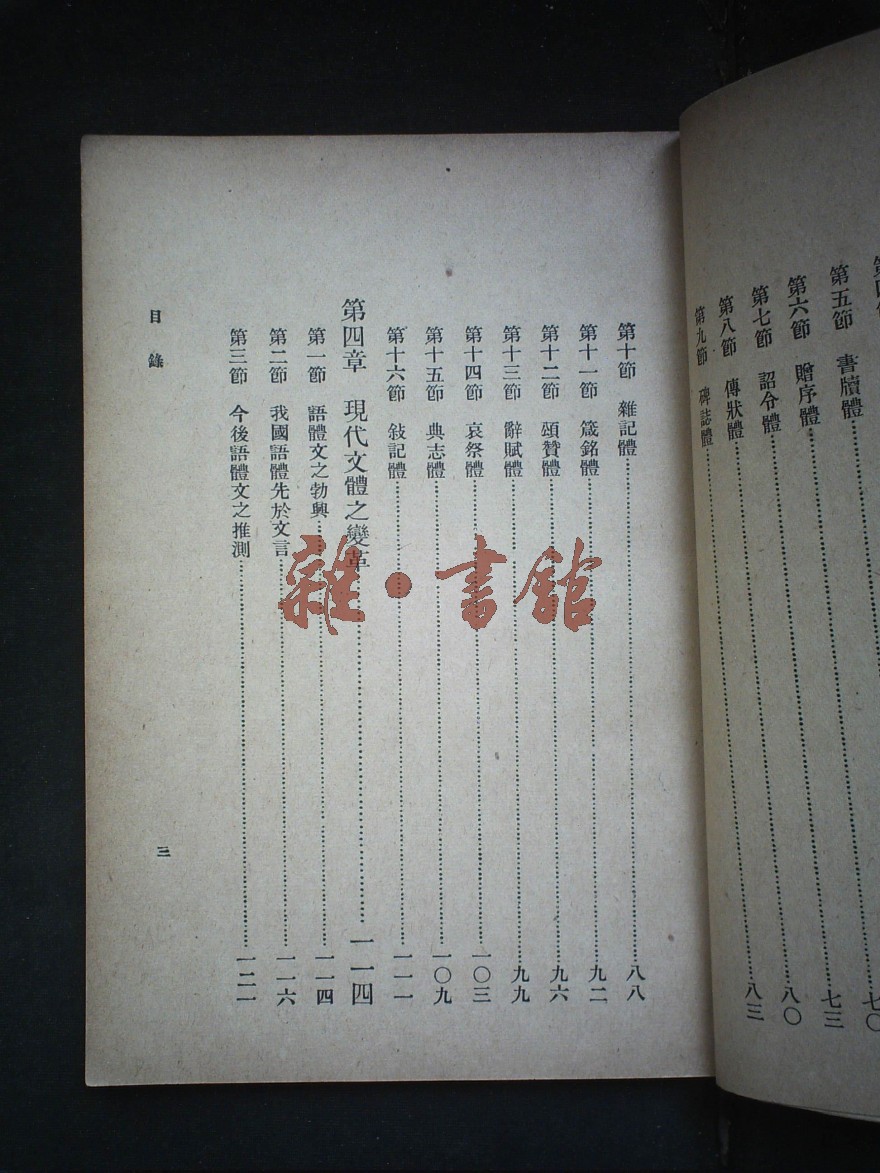 第五節　書牘體……七〇
第六節　贈序體……七三
第七節　詔令體……八〇
第八節　傳狀體……八三
第九節　碑誌體……
第十節　雜記體……八八
第十一節　箴銘體……九二
第十二節　頌贊體……九六
第十三節　辭賦體……九九
第十四節　哀祭體……一〇三
第十五節　典志體……一〇九
第十六節　敍記體……一一一
第四章　現代文體之變革……一一四
第一節　語體文之勃興……一一四
第二節　我國語體先於文言……一一六
第三節　今後語體文之推測……一二一
目錄
三
雜·書館